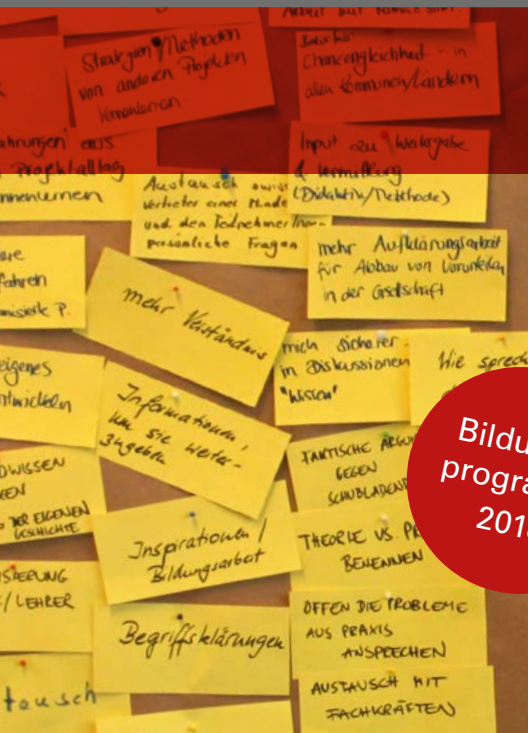 Strategien/Methoden
von anderen Projekten
kennenlernen
Chancengleichheit - in
allen Kommunen/Ländern
aus
Projektalltag
Input zu Weitergabe
& Vermittlung
(Didaktik/Methode)
Austausch
Vertreter einer Minde
und den Teilnehmer/innen
persönliche Fragen
mehr Aufklärungsarbeit
für Abbau von Vorurteilen
in der Gesellschaft
mehr Verständnis
mich sicherer
in Diskussionen
"wissen"
Wie sprech
eigenes
Informationen,
um sie weiter-
zugeben
FAKTISCHE
GEGEN
Bildu
progra
201
DER EIGENEN
GESCHICHTE
Inspirationen /
Bildungsarbeit
THEORIE VS. PR
BENENNEN
/ LEHRER
Begriffsklärungen
OFFEN DIE PROBLEME
AUS PRAXIS
ANSPRECHEN
tausch
AUSTAUSCH MIT
FACHKRÄFTEN